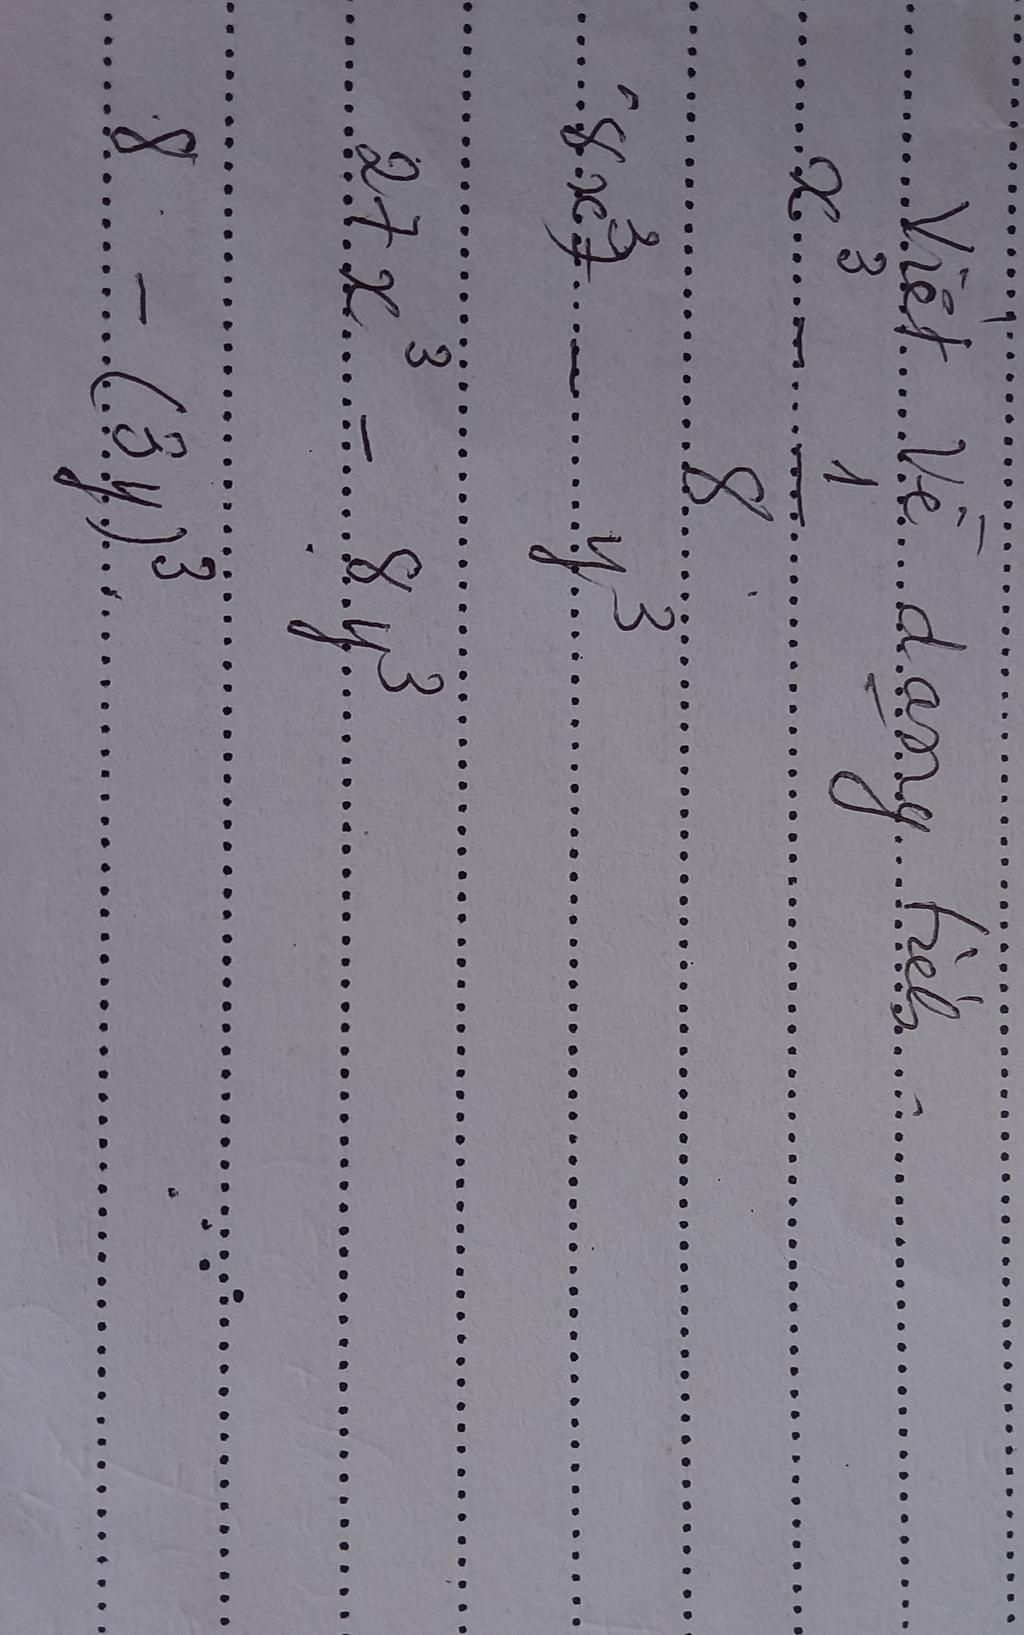 Viết Về dạng tích
x³ - 1/8
8x³ - y³
27x³ - 8y³
8 - (3y)³